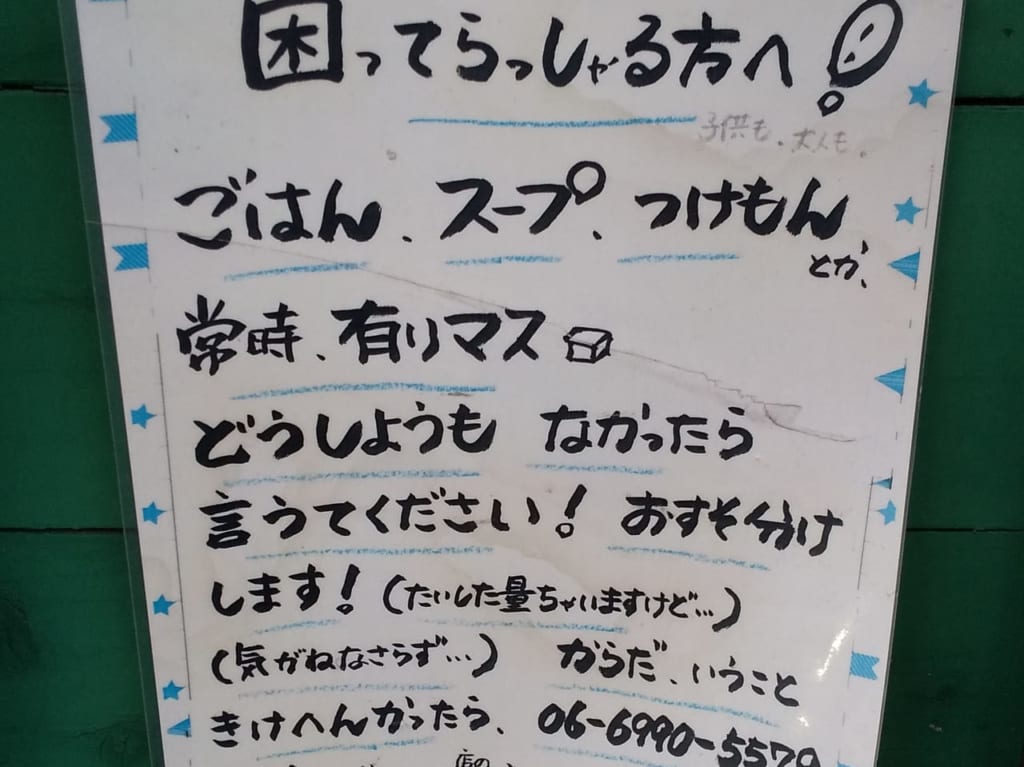 困ってらっしゃる方へ!
子供も、大人も。
ごはん、スープ、つけもん、
とか、
常時、有りマス
どうしようも なかったら
言うてください! おすそ分け
します! (たいした量ちゃいますけど…)
(気がねなさらず…) からだ、いうこと
きけへんかったら、06-6990-5579
店の